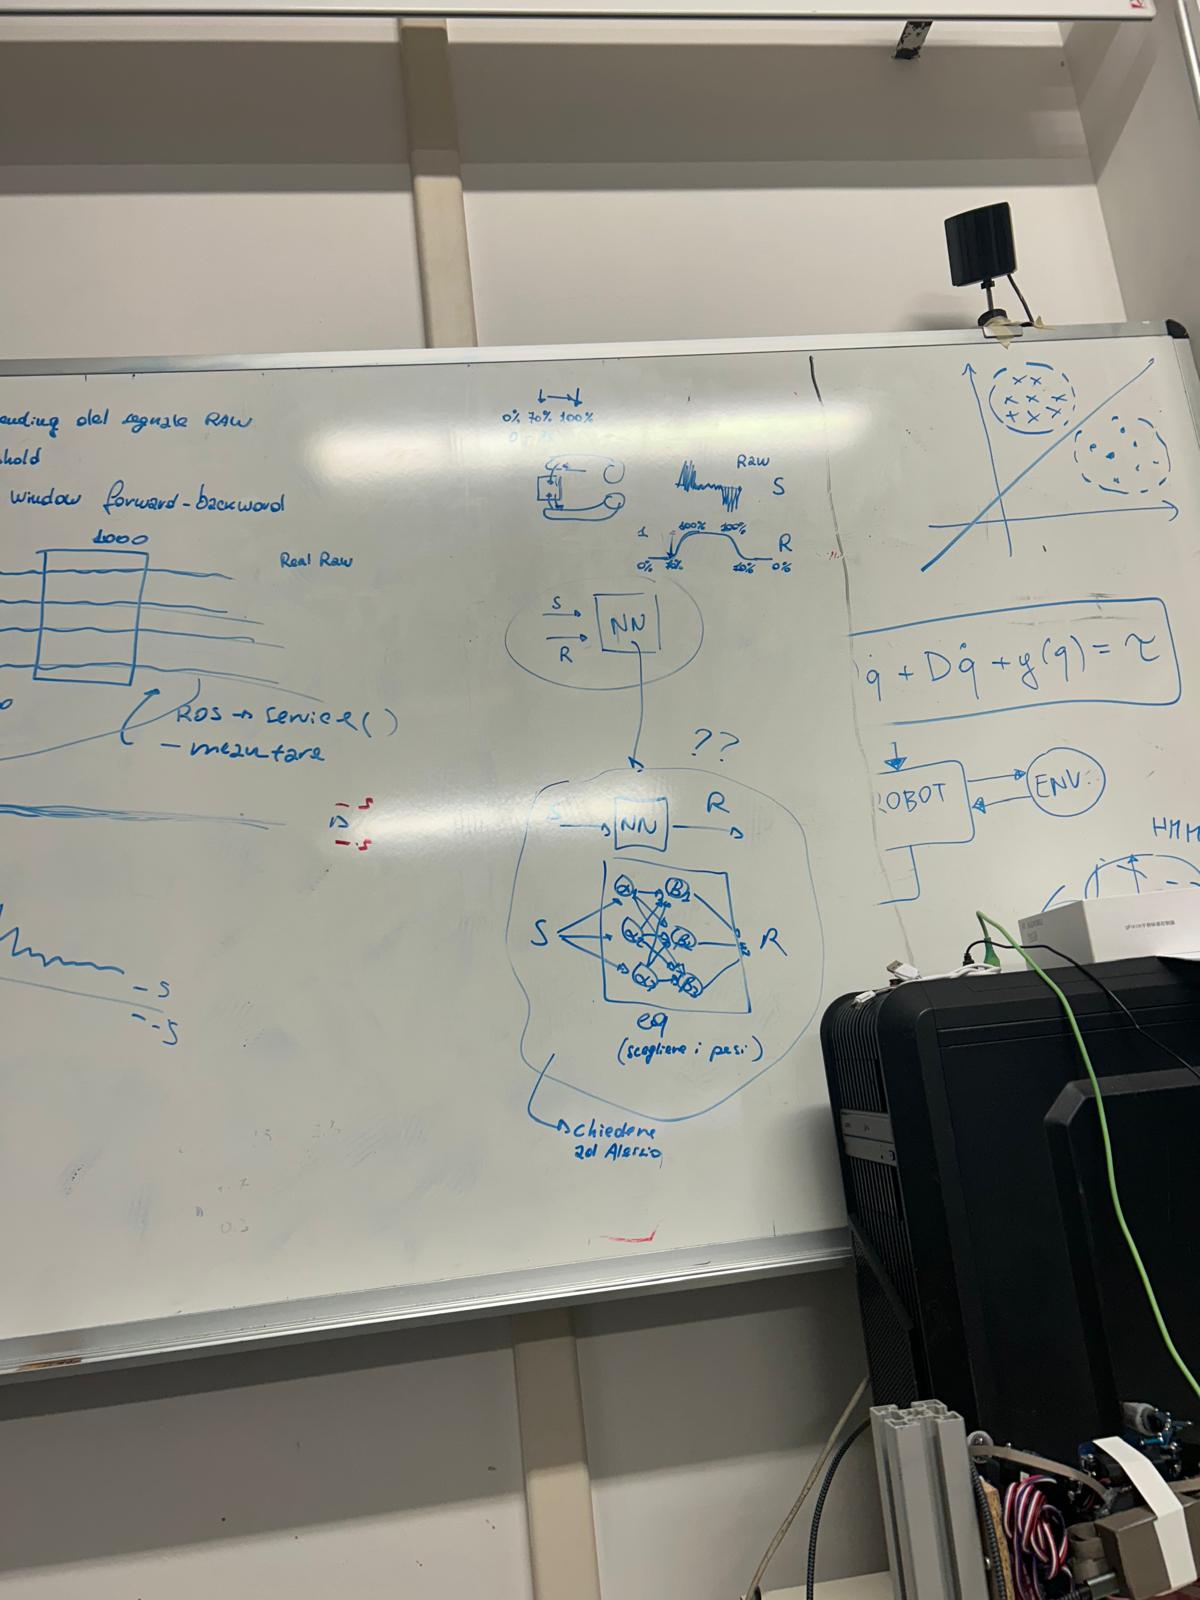 ending del segnale RAW
shold
window forward-backword
1000
Real Raw
ROS → service()
- mezu tare
- 5
- -5
0% 70% 100%
Raw
S
1
100% 100%
R
0% 70% 70% 0%
S
R
NN
??
S
NN
R
S
α1 β1
α2 β2
α3 β3
R
eq
(scegliere i pesi)
chiedere
ad Alessio
q̇ + Dq̇ + g(q) = τ
OBOT
ENV.
HMM